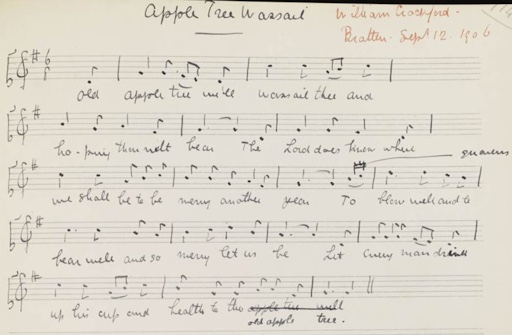 Apple Tree Wassail
William Crockford -
Bratton. Sept 12. 1906
old apple tree we'll wassail thee and
ho-ping thou wilt bear The Lord does know where
quavers
we shall be to be merry another year To blow well and to
bear well and so merry let us be Let every man drink
up his cup and health to the apple tree well
old apple tree.